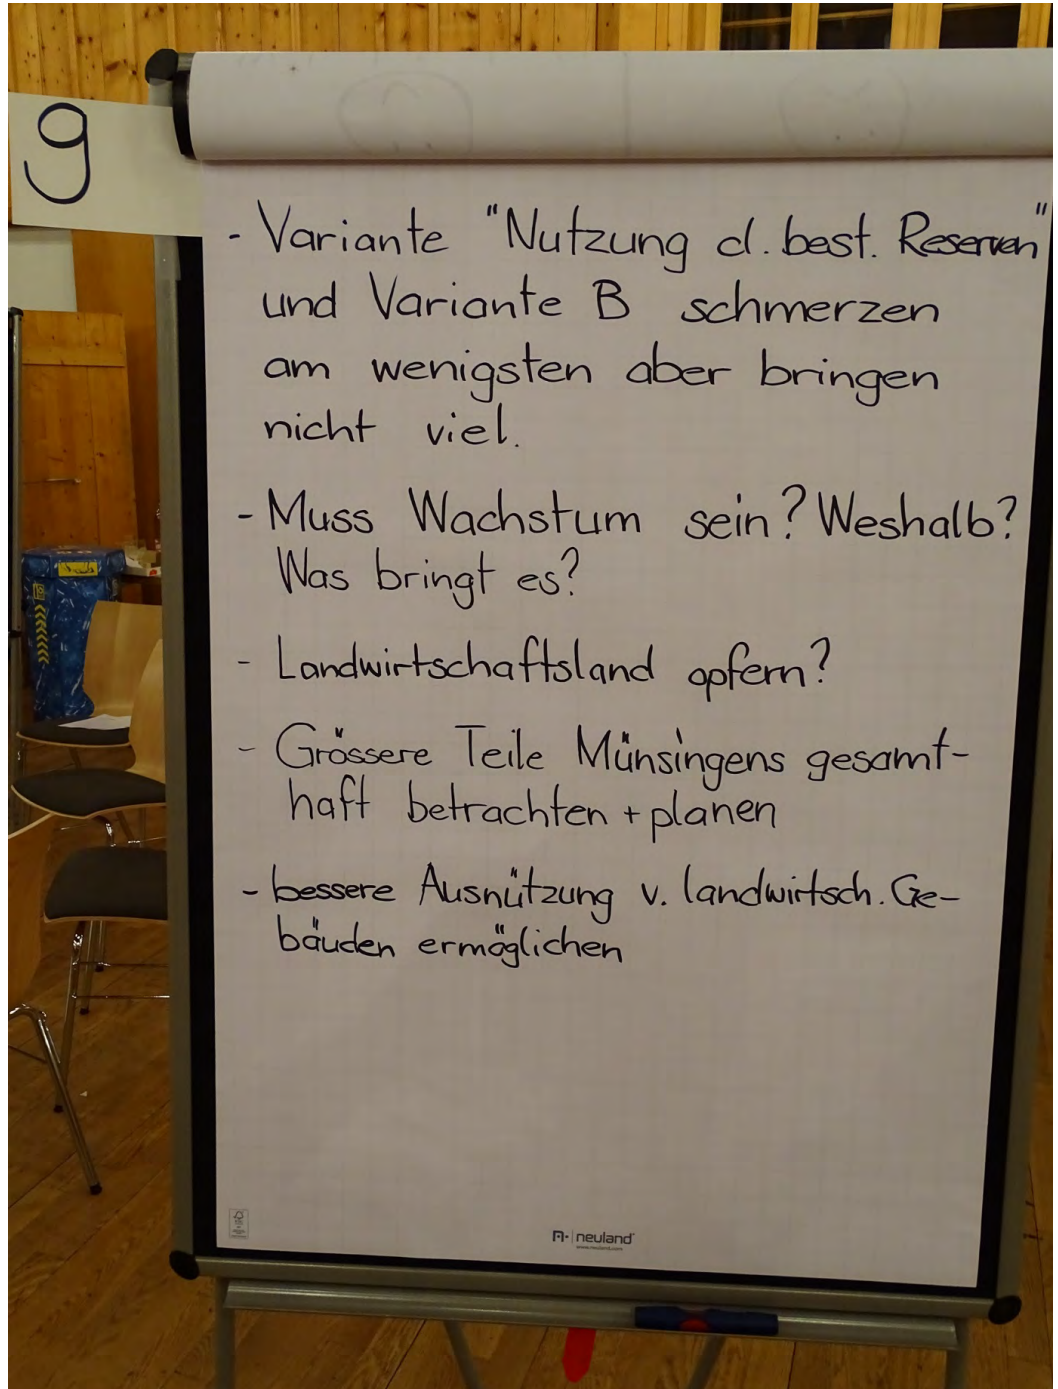 9
- Variante "Nutzung d. best. Reserven"
und Variante B schmerzen
am wenigsten aber bringen
nicht viel.
- Muss Wachstum sein? Weshalb?
Was bringt es?
- Landwirtschaftsland opfern?
- Grössere Teile Münsingens gesamt-
haft betrachten + planen
- bessere Ausnützung v. landwirtsch. Ge-
bäuden ermöglichen
neuland
www.neuland.com